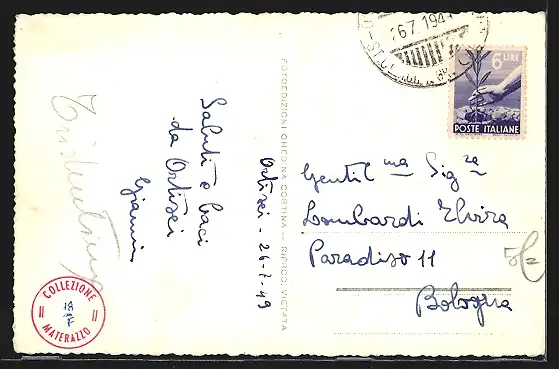 Saluti e baci
da Ortisei
Gianni
Ortisei - 26-7-49
FOTOEDIZIONI GHEDINA CORTINA — RIPROD. VIETATA
26 7 194
6 LIRE
POSTE ITALIANE
Gentil ma Sig ra
Lombardi Elvira
Paradiso 11
Bologna
COLLEZIONE
MATERAZZO